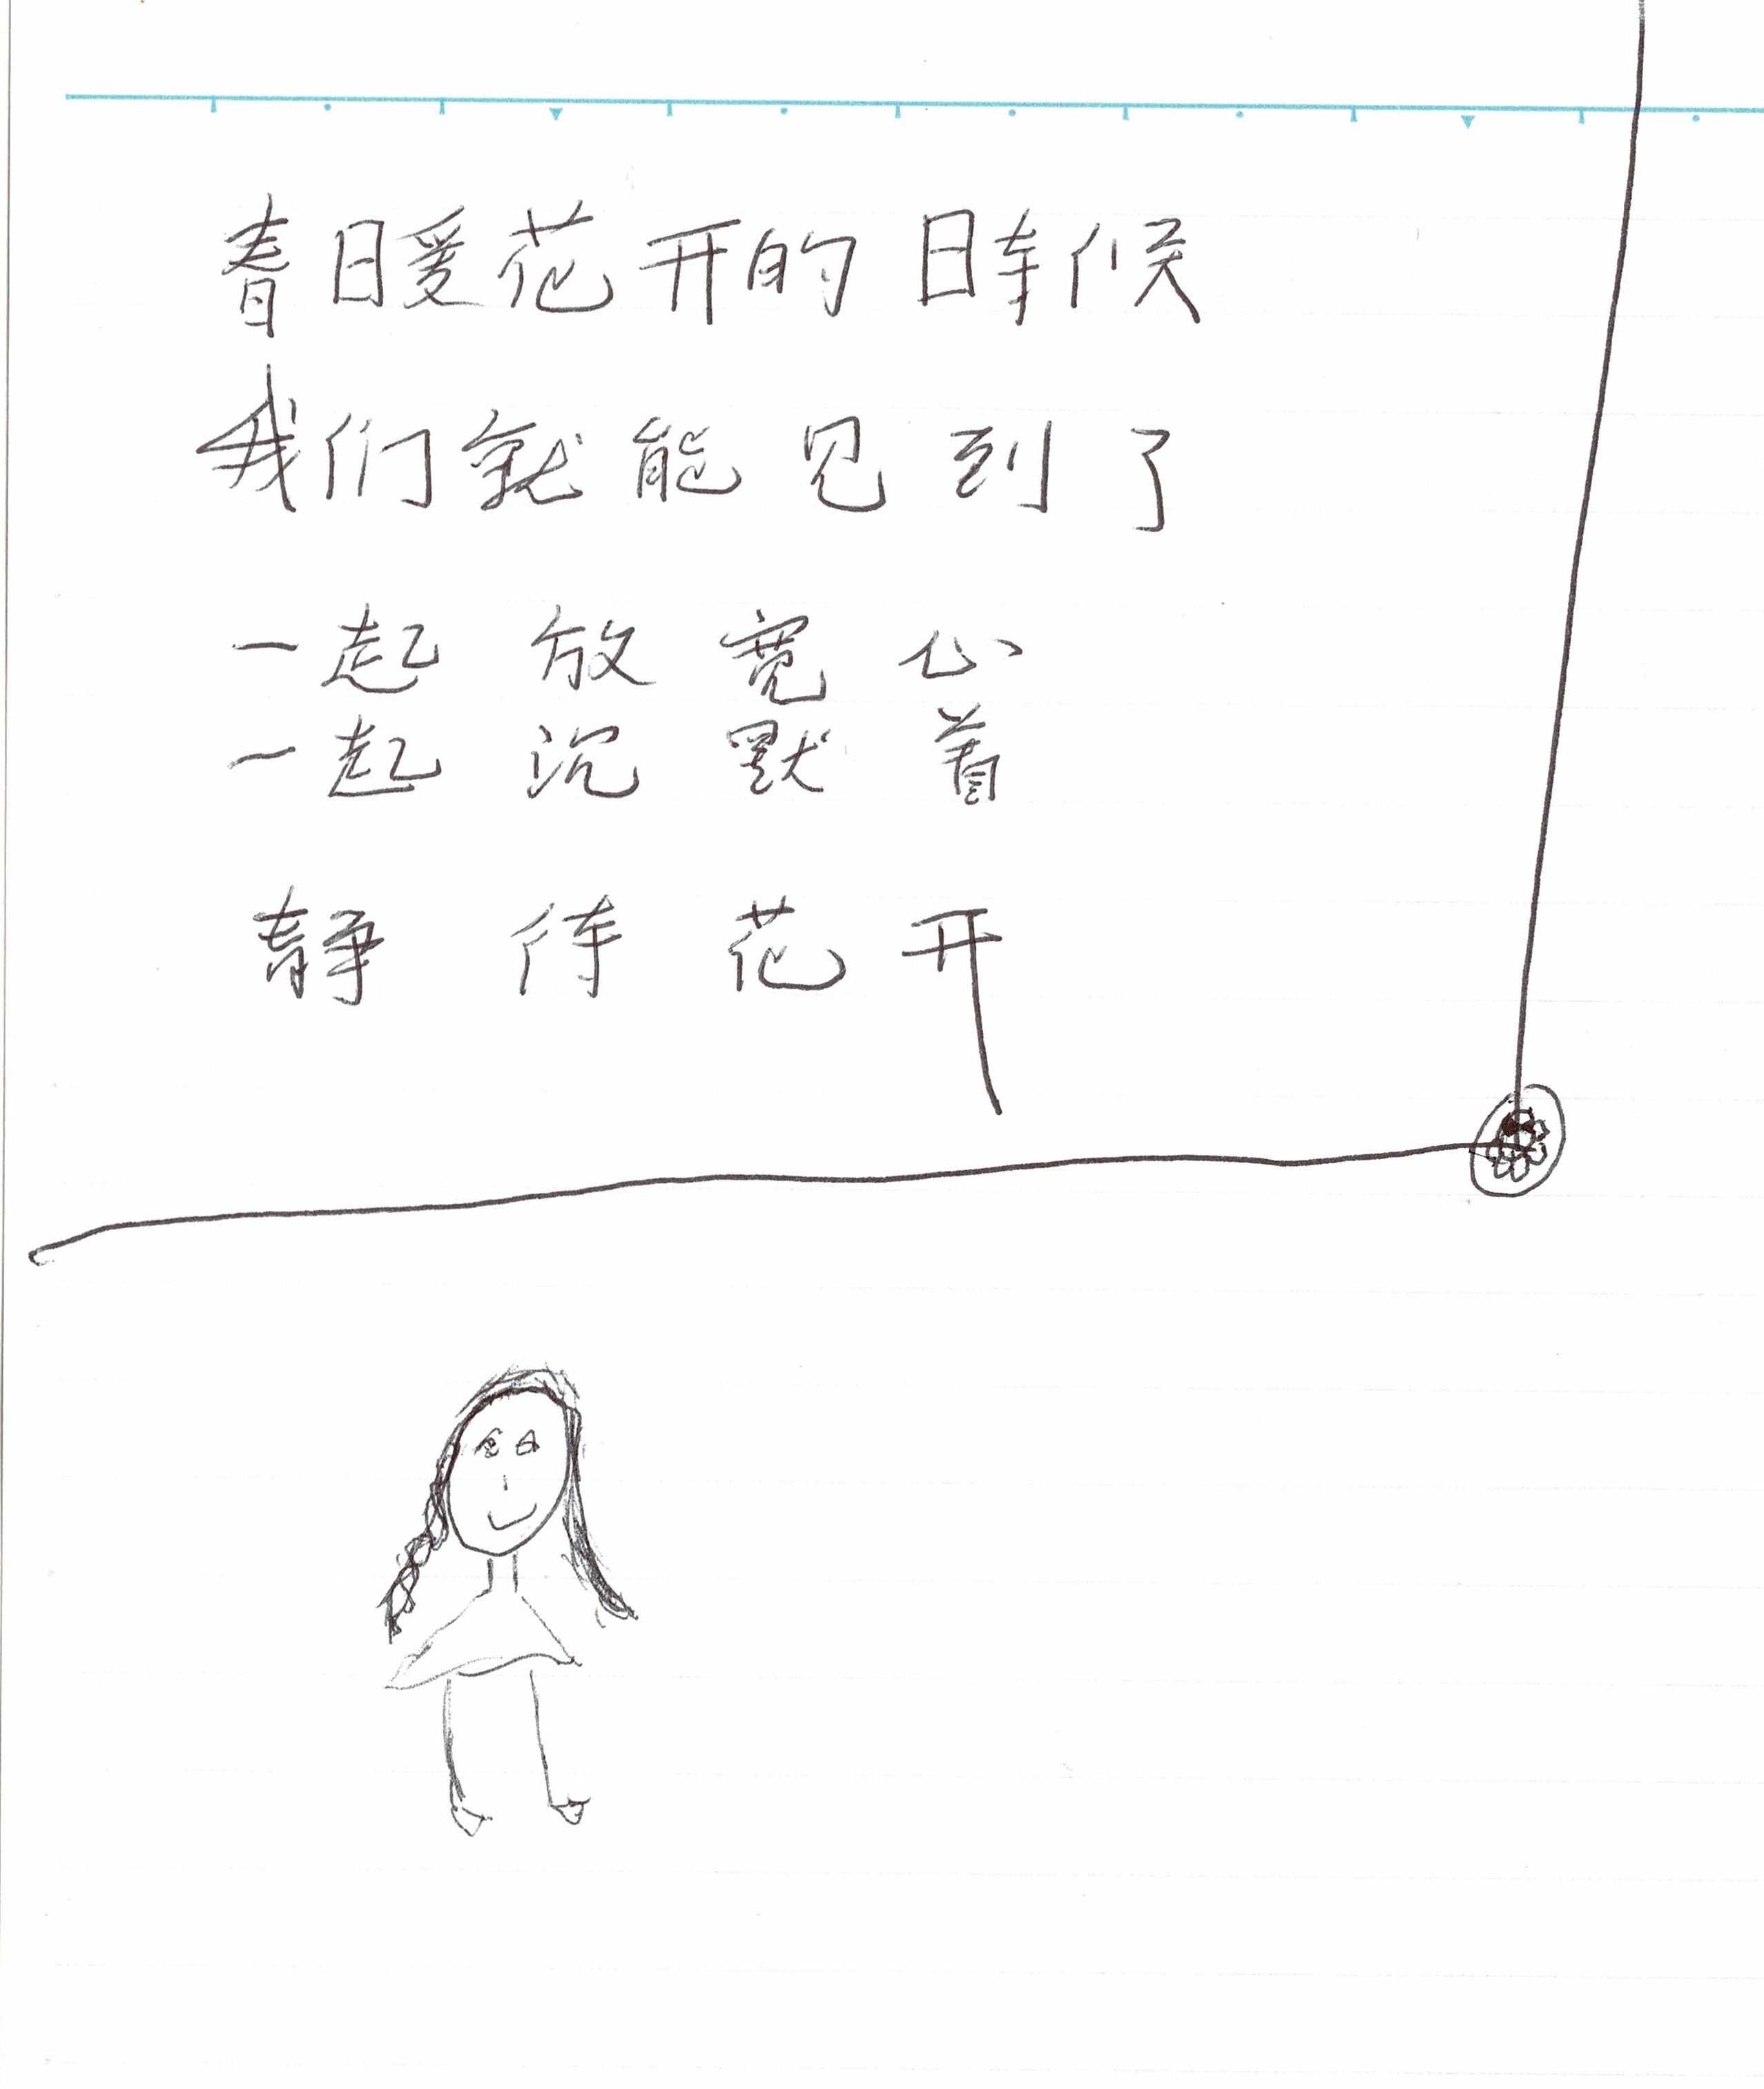 春暖花开的時候
我们就能见到了
一起放宽心
一起沉默着
静待花开